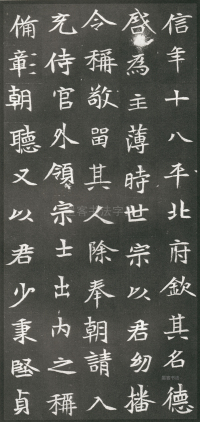 信年十八平北府欽其名德
啓為主薄時世宗以君幼播
令稱敬畱其人除奉朝請入
充侍官外領宗士出内之稱
俻彰朝聽又以君少秉堅貞